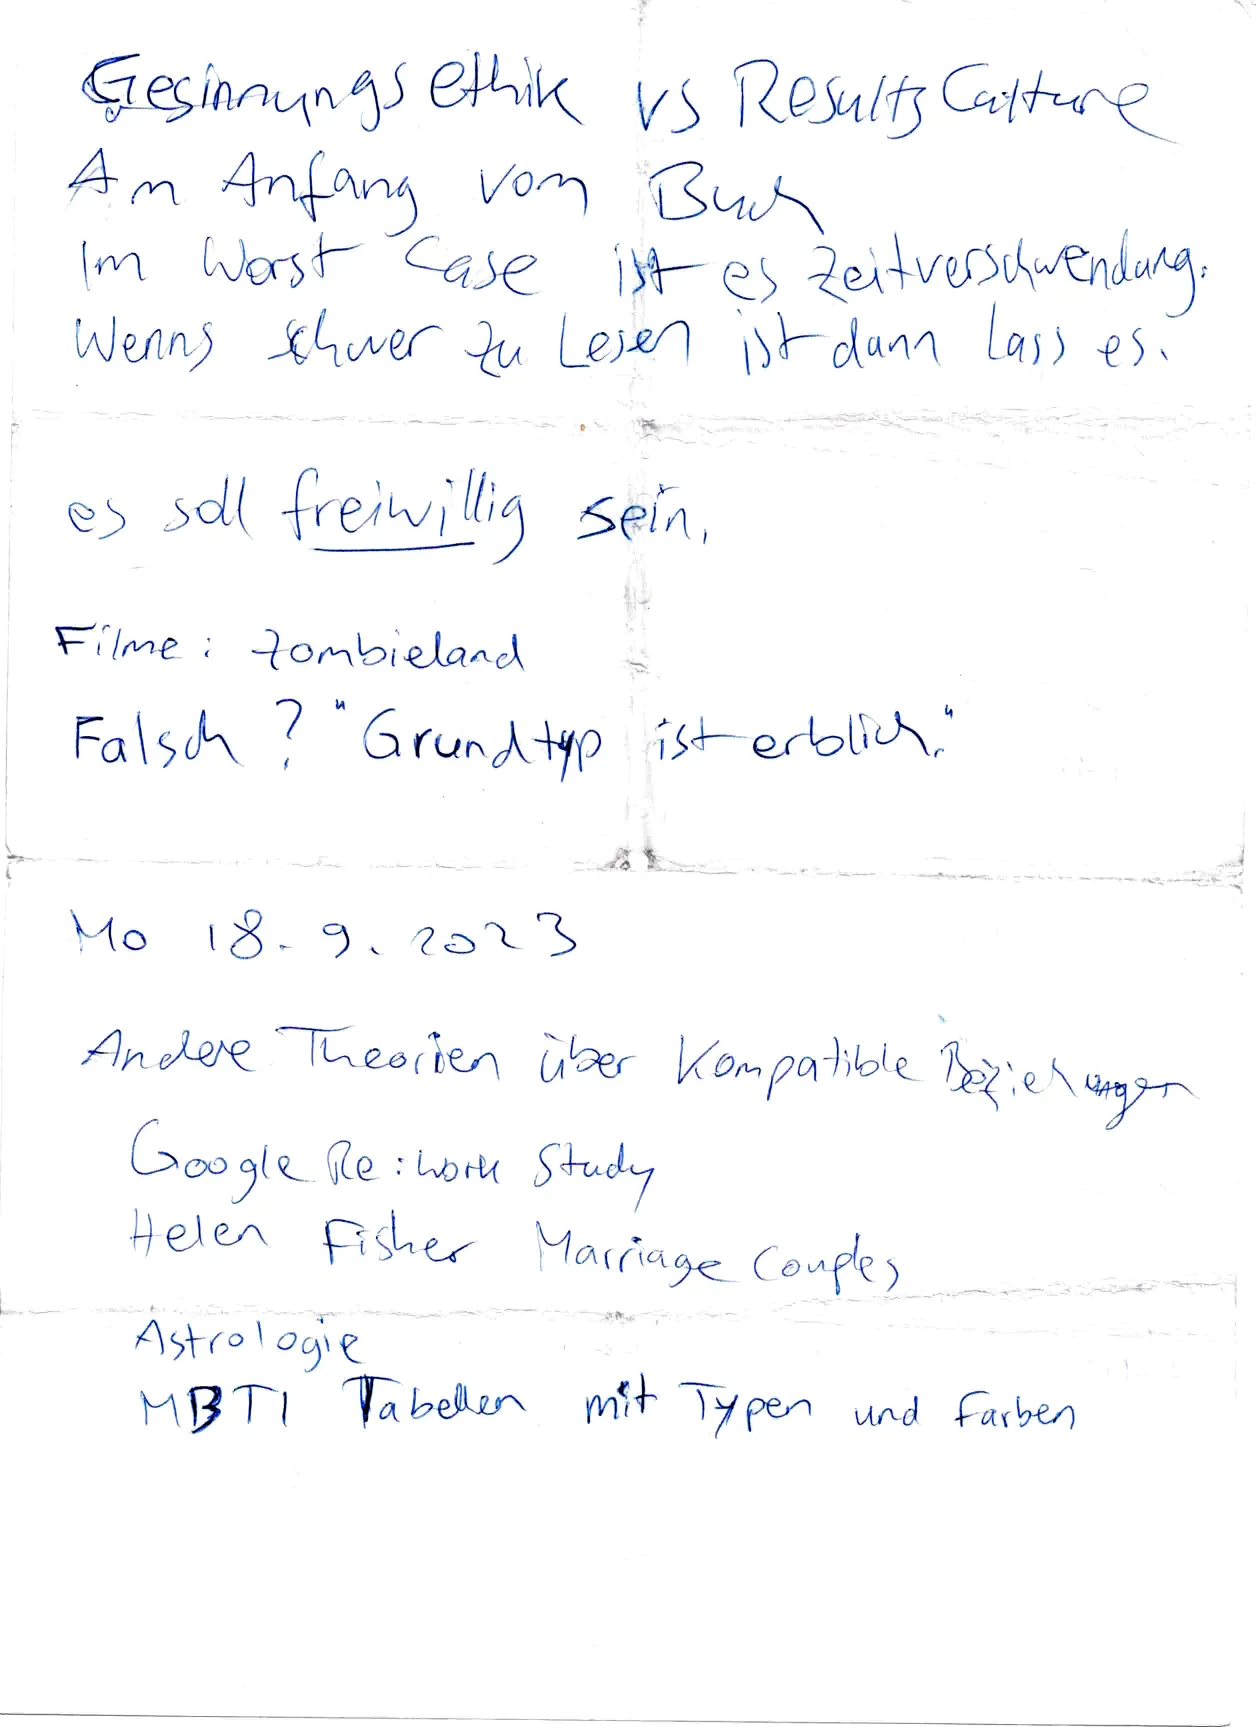 Gesinnungsethik vs Results Culture
Am Anfang vom Buch
Im Worst Case ist es Zeitverschwendung.
Wenns schwer zu Lesen ist dann lass es.
es soll freiwillig sein.
Filme: Zombieland
Falsch? "Grundtyp ist erblich."
Mo 18.9.2023
Andere Theorien über Kompatible Beziehungen
Google Re:work Study
Helen Fisher Marriage Couples
Astrologie
MBTI Tabellen mit Typen und Farben